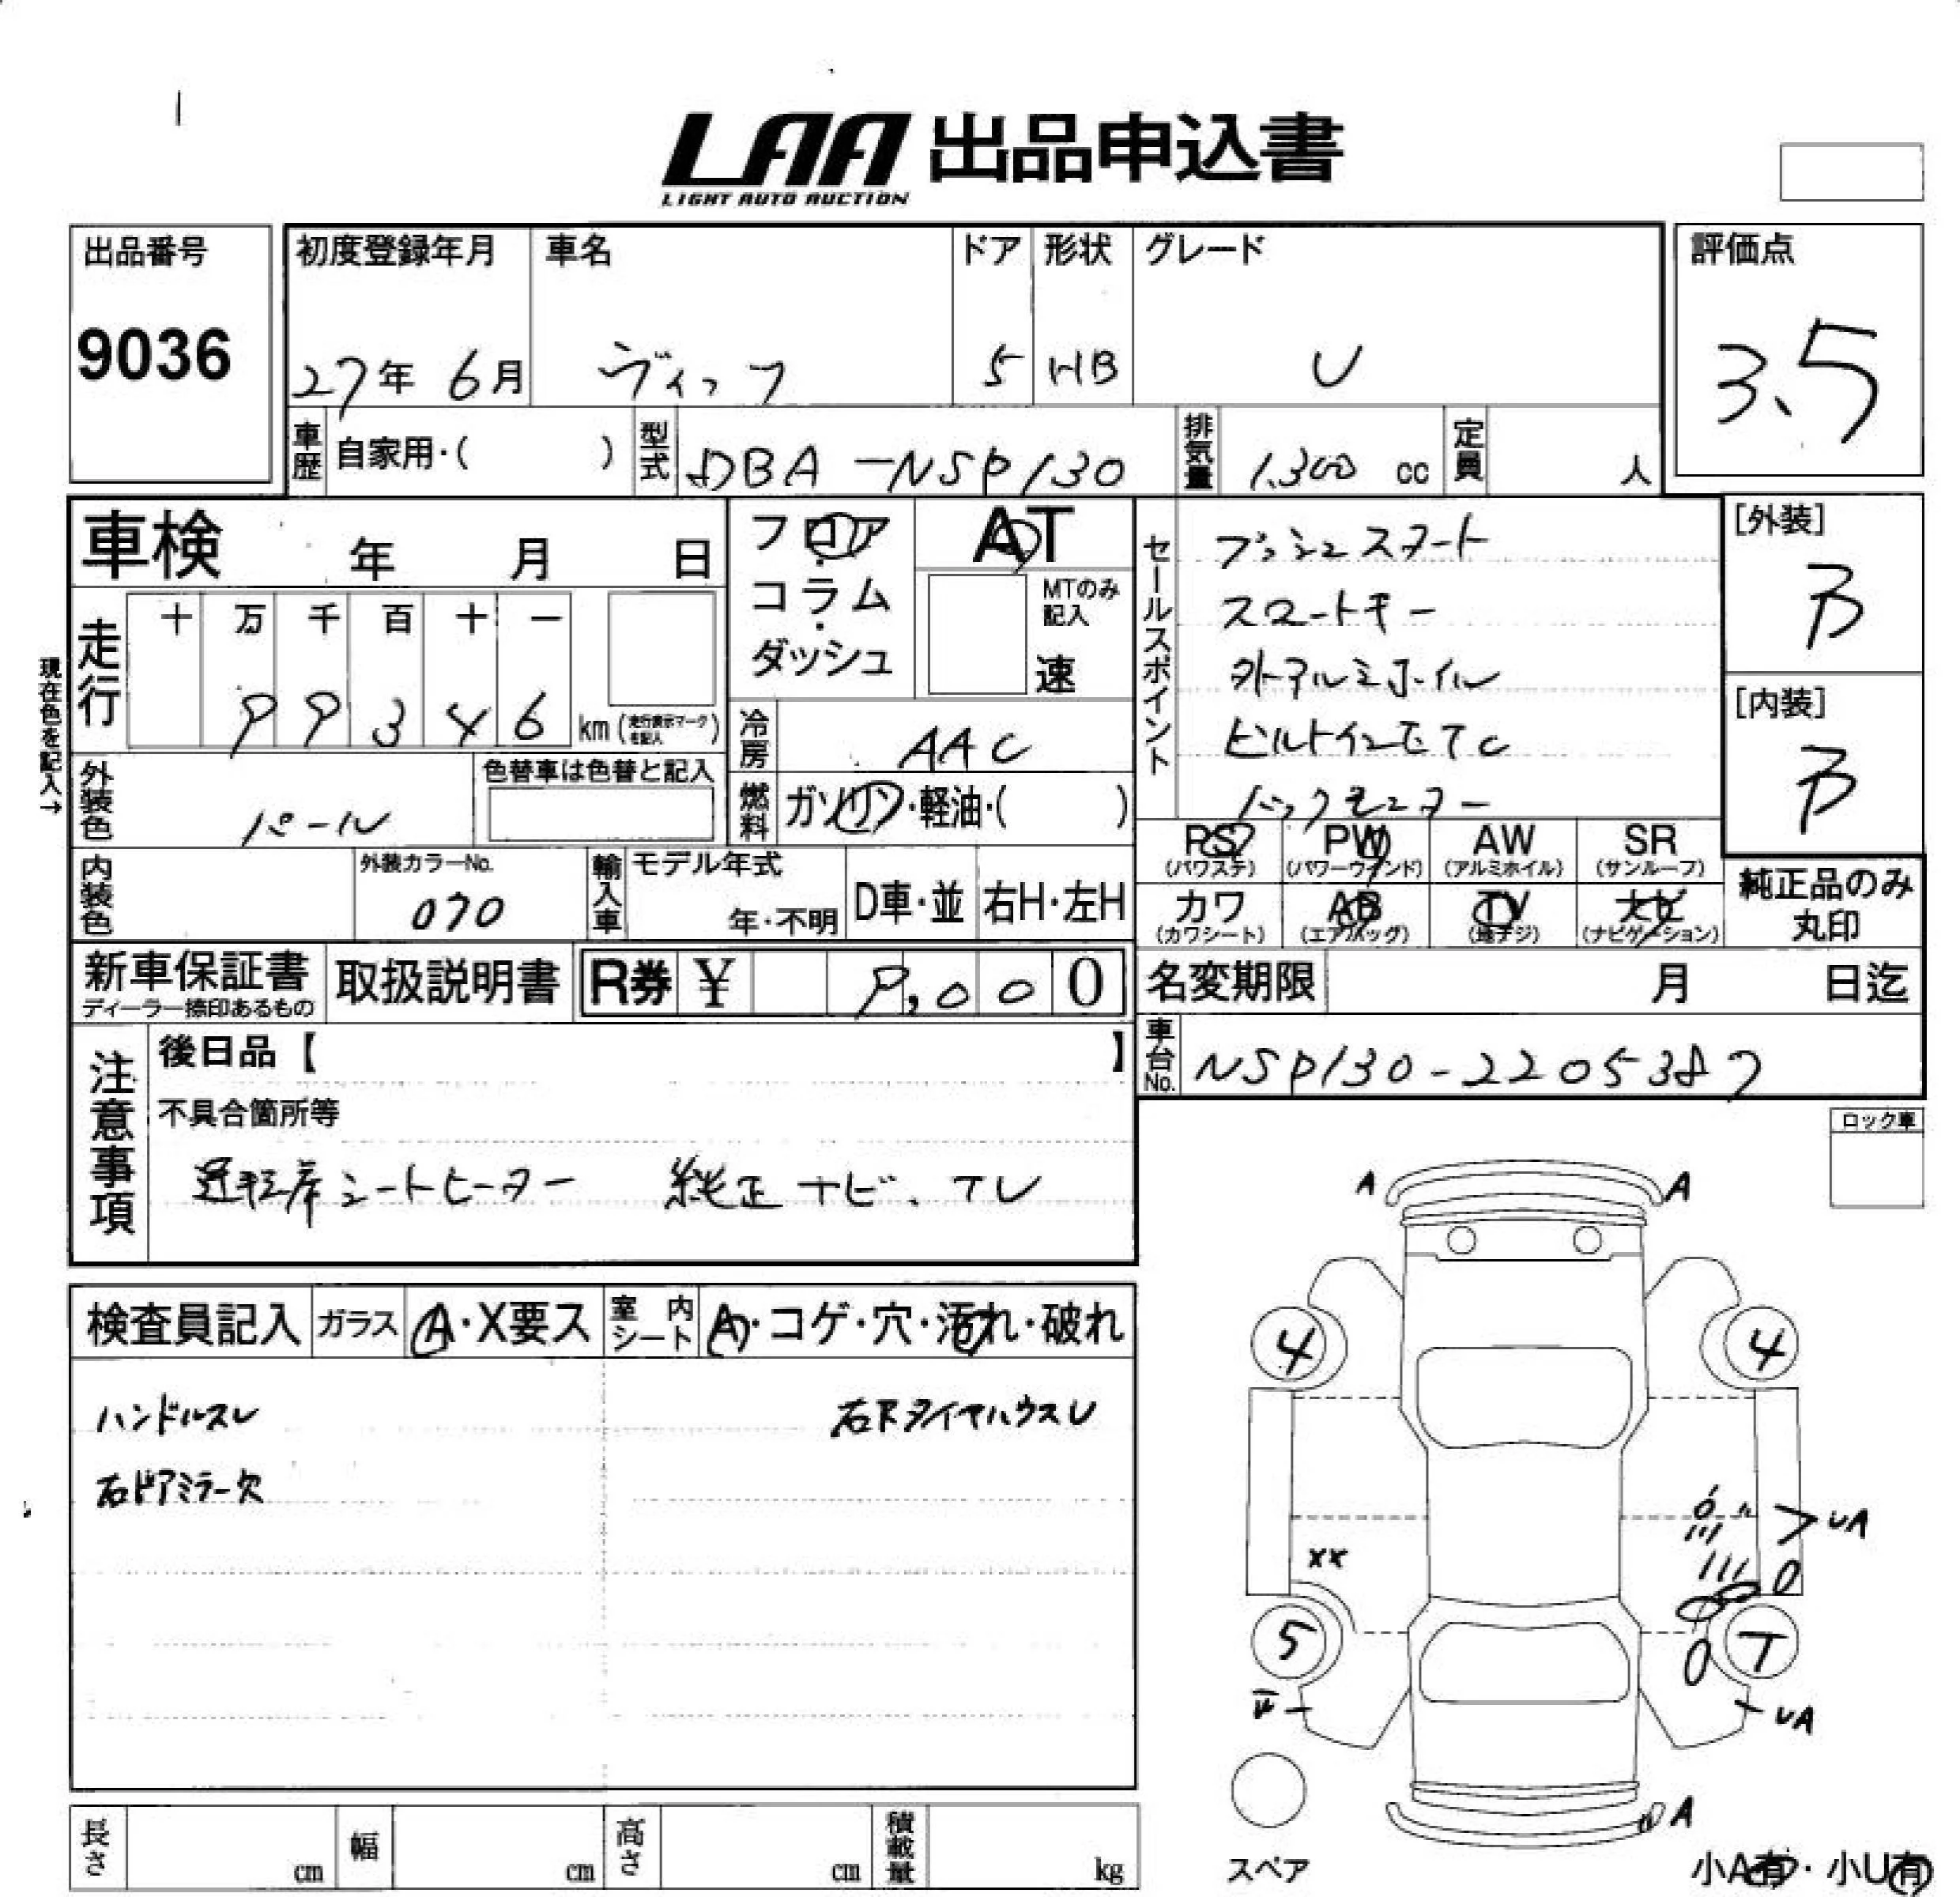 LAA 出品申込書
LIGHT AUTO AUCTION
出品番号
9036
初度登録年月
27年 6月
車名
ヴィッツ
ドア
5
形状
HB
グレード
U
評価点
3.5
車歴 自家用・( )
型式 DBA-NSP130
排気量 1,300 cc
定員 人
車検 年 月 日
フロア・コラム・ダッシュ
AT
MTのみ記入
速
走行
十 万 千 百 十 一
9 9 3 4 6 km (走行表示マークを記入)
現在色を記入→
冷房 AAC
外装色 パール
色替車は色替と記入
燃料 ガソリン・軽油・( )
内装色
外装カラーNo.
070
輸入車
モデル年式
年・不明
D車・並
右H・左H
セールスポイント
プッシュスタート
スマートキー
外アルミホイル
ビルトインETC
バックモニター
PS (パワステ)
PW (パワーウィンド)
AW (アルミホイル)
SR (サンルーフ)
カワ (カワシート)
AB (エアバッグ)
TV (地デジ)
ナビ (ナビゲーション)
[外装]
B
[内装]
B
純正品のみ丸印
新車保証書
ディーラー捺印あるもの
取扱説明書
R券 ¥ 9,000
名変期限 月 日迄
車台No. NSP130-2205387
注意事項
後日品【 】
不具合箇所等
運転席シートヒーター 純正ナビ、TV
ロック車
検査員記入
ガラス A・X要ス
室内シート A・コゲ・穴・汚れ・破れ
ハンドルスレ
右ドアミラー欠
右Rタイヤハウスレ
A A
4 4
UA
XX
5 T
UA
A
スペア
小A有・小U有
長さ cm
幅 cm
高さ cm
積載量 kg